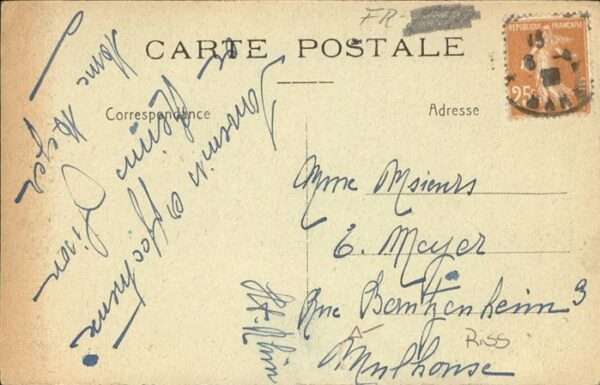 FR-
CARTE POSTALE
Correspondance
Adresse
RÉPUBLIQUE FRANÇAISE
25c
Souvenir affectueux
de
Mme Meyer
Mme Msieurs
E. Meyer
Rue Bantzenheim 3
Mulhouse
Ht. Rhin
Riss